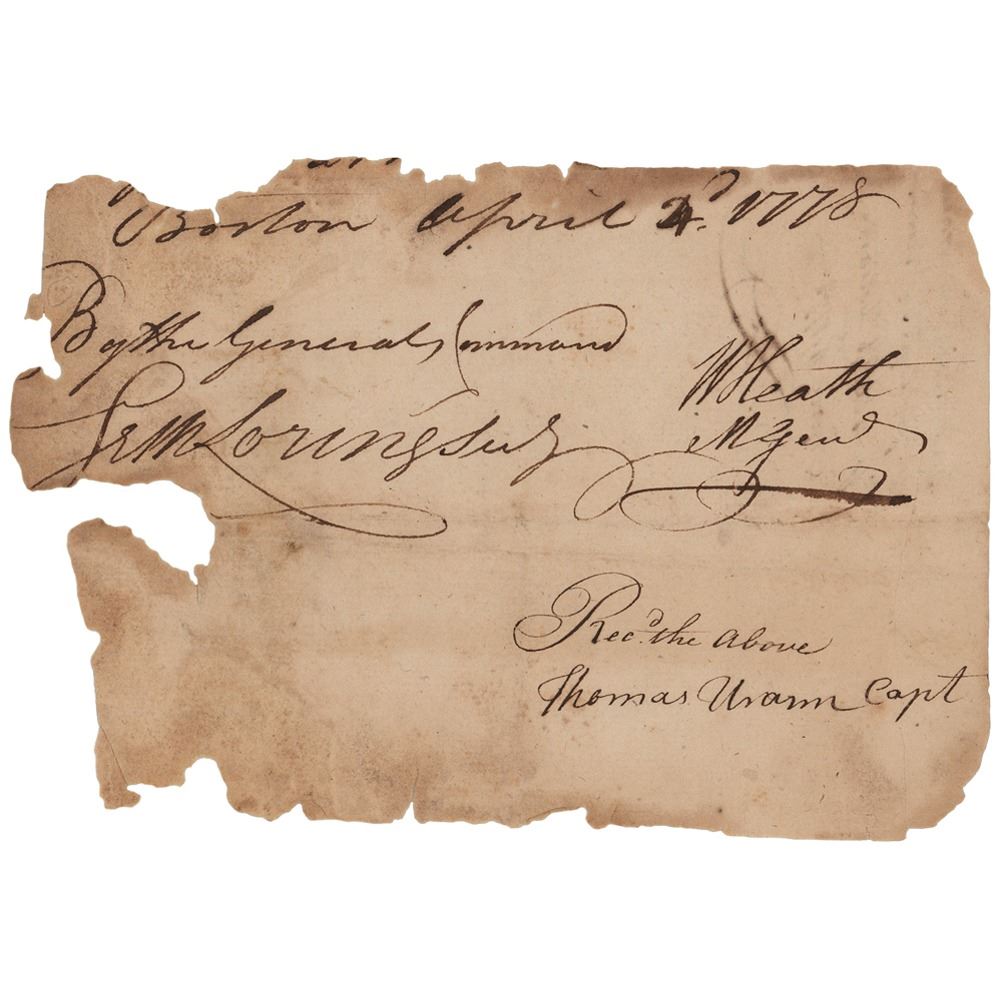 Boston April 2d. 1778
By the General Command
Seth Loring Secy
W Heath
M Genl
Recd. the above
Thomas Urann Capt